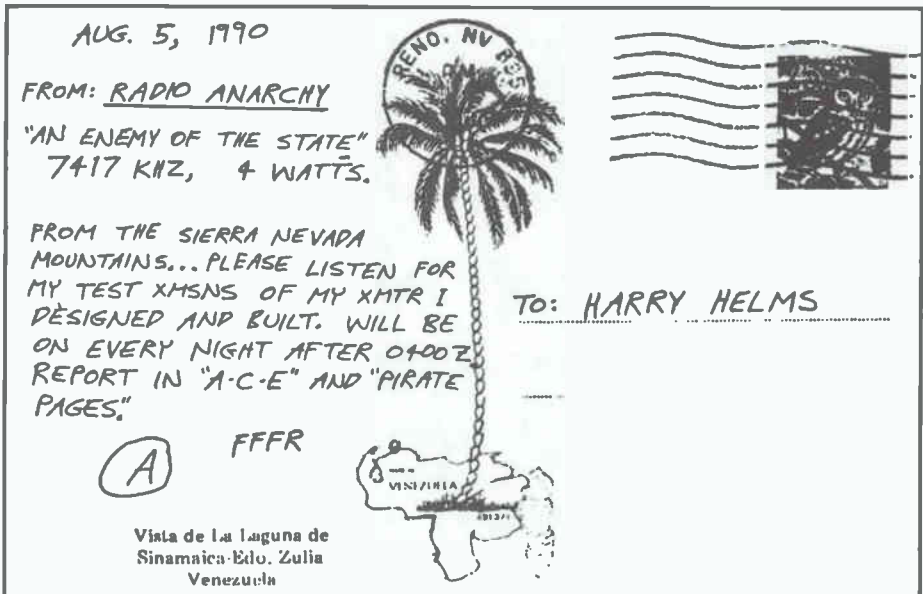 AUG. 5, 1990
FROM: RADIO ANARCHY
"AN ENEMY OF THE STATE"
7417 KHZ, 4 WATTS.
FROM THE SIERRA NEVADA
MOUNTAINS... PLEASE LISTEN FOR
MY TEST XMSNS OF MY XMTR I
DESIGNED AND BUILT. WILL BE
ON EVERY NIGHT AFTER 0400Z
REPORT IN "A·C·E" AND "PIRATE
PAGES."
A FFFR
Vista de La Laguna de
Sinamaica-Edo. Zulia
Venezuela
RENO, NV
VENEZUELA
TO: HARRY HELMS